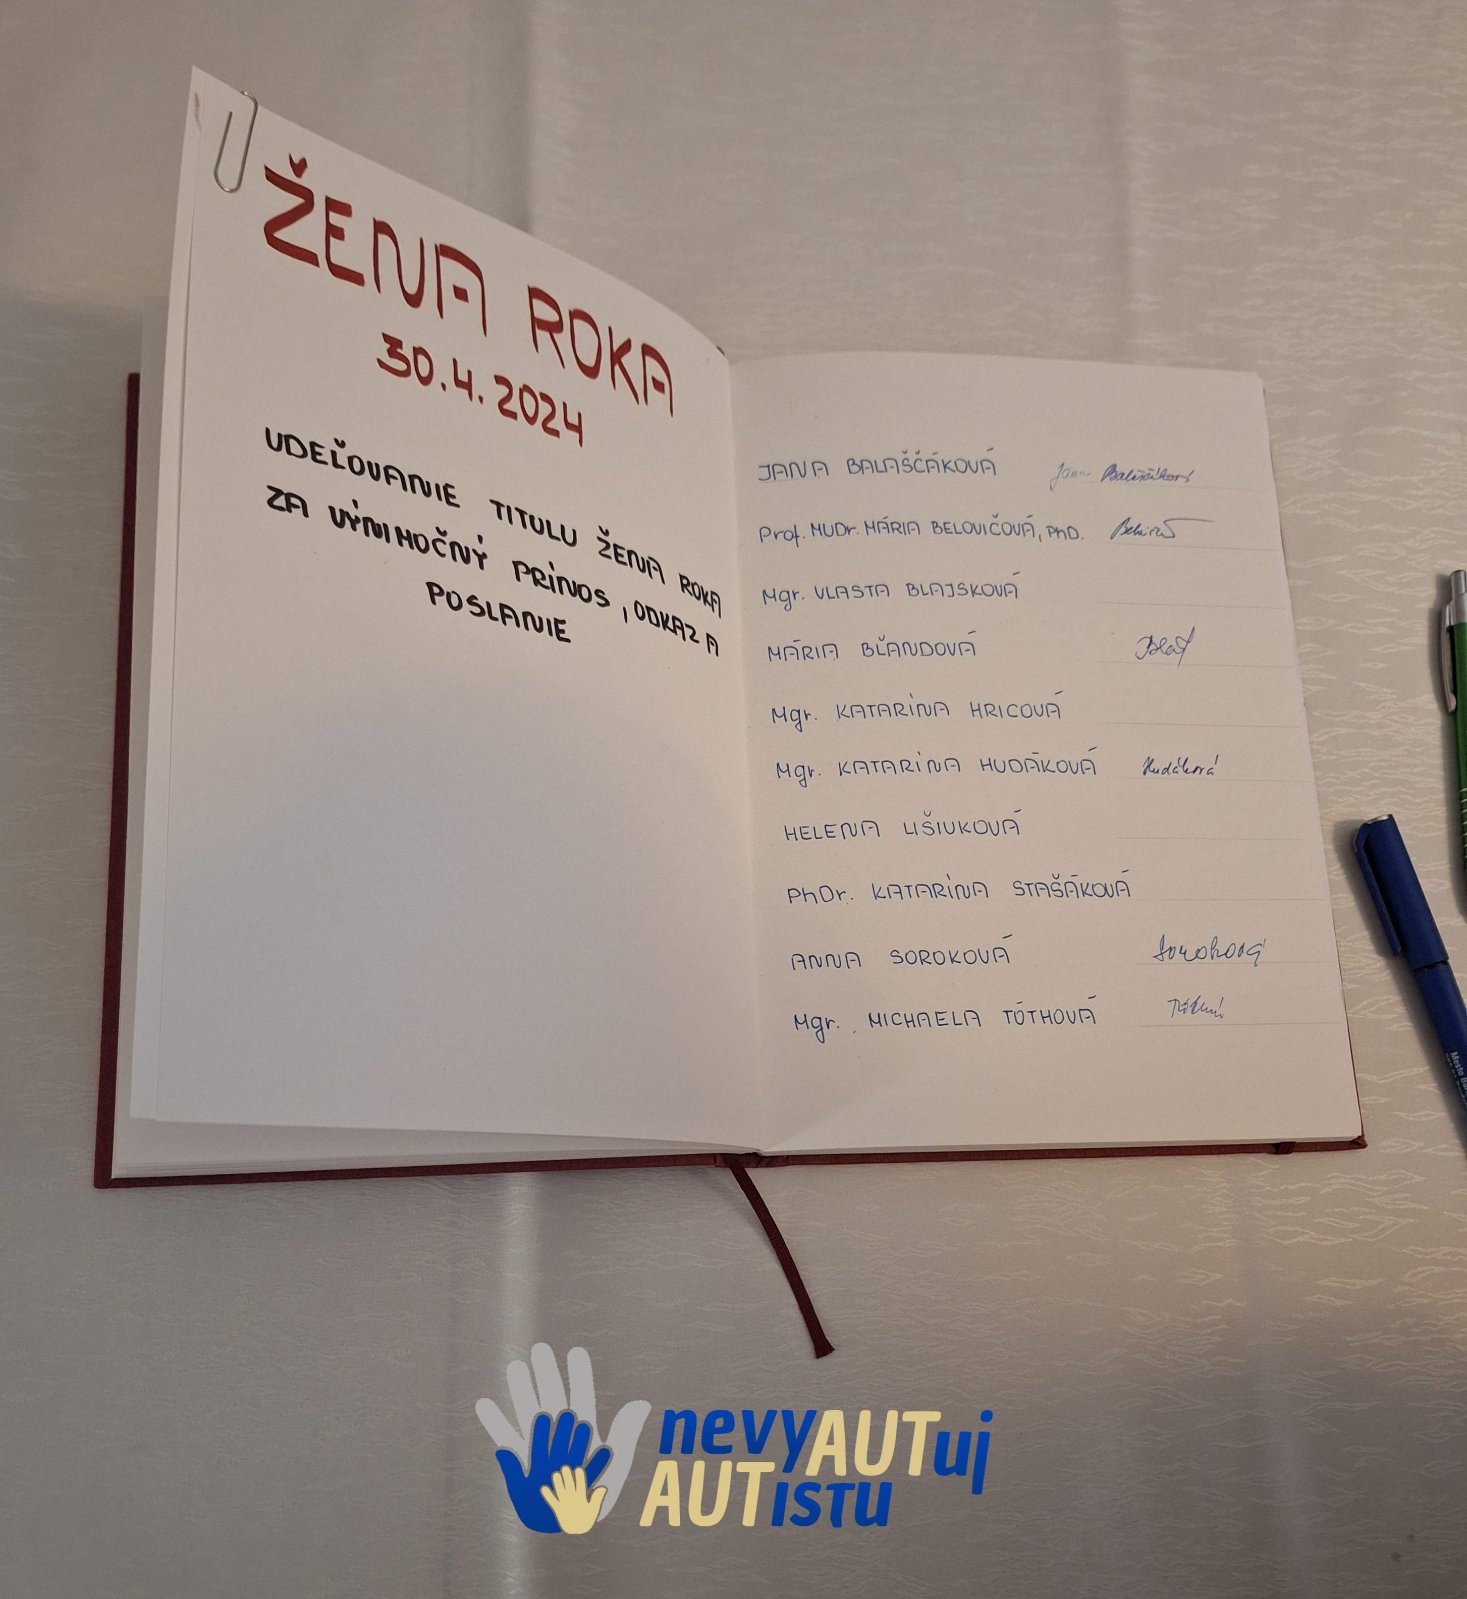 ŽENA ROKA
30.4.2024
UDEĽOVANIE TITULU ŽENA ROKA
ZA VÝNIMOČNÝ PRÍNOS, ODKAZ A
POSLANIE
JANA BALAŠČÁKOVÁ Jana Balaščáková
Prof. MUDr. MÁRIA BELOVIČOVÁ, PhD.
Mgr. VLASTA BLAJSKOVÁ
MÁRIA BĽANDOVÁ
Mgr. KATARÍNA HRICOVÁ
Mgr. KATARÍNA HUDÁKOVÁ Hudáková
HELENA LIŠIVKOVÁ
PhDr. KATARÍNA STAŠÁKOVÁ
ANNA SOROKOVÁ Soroková
Mgr. MICHAELA TÓTHOVÁ
Mesto
nevyAUTuj
AUTistu